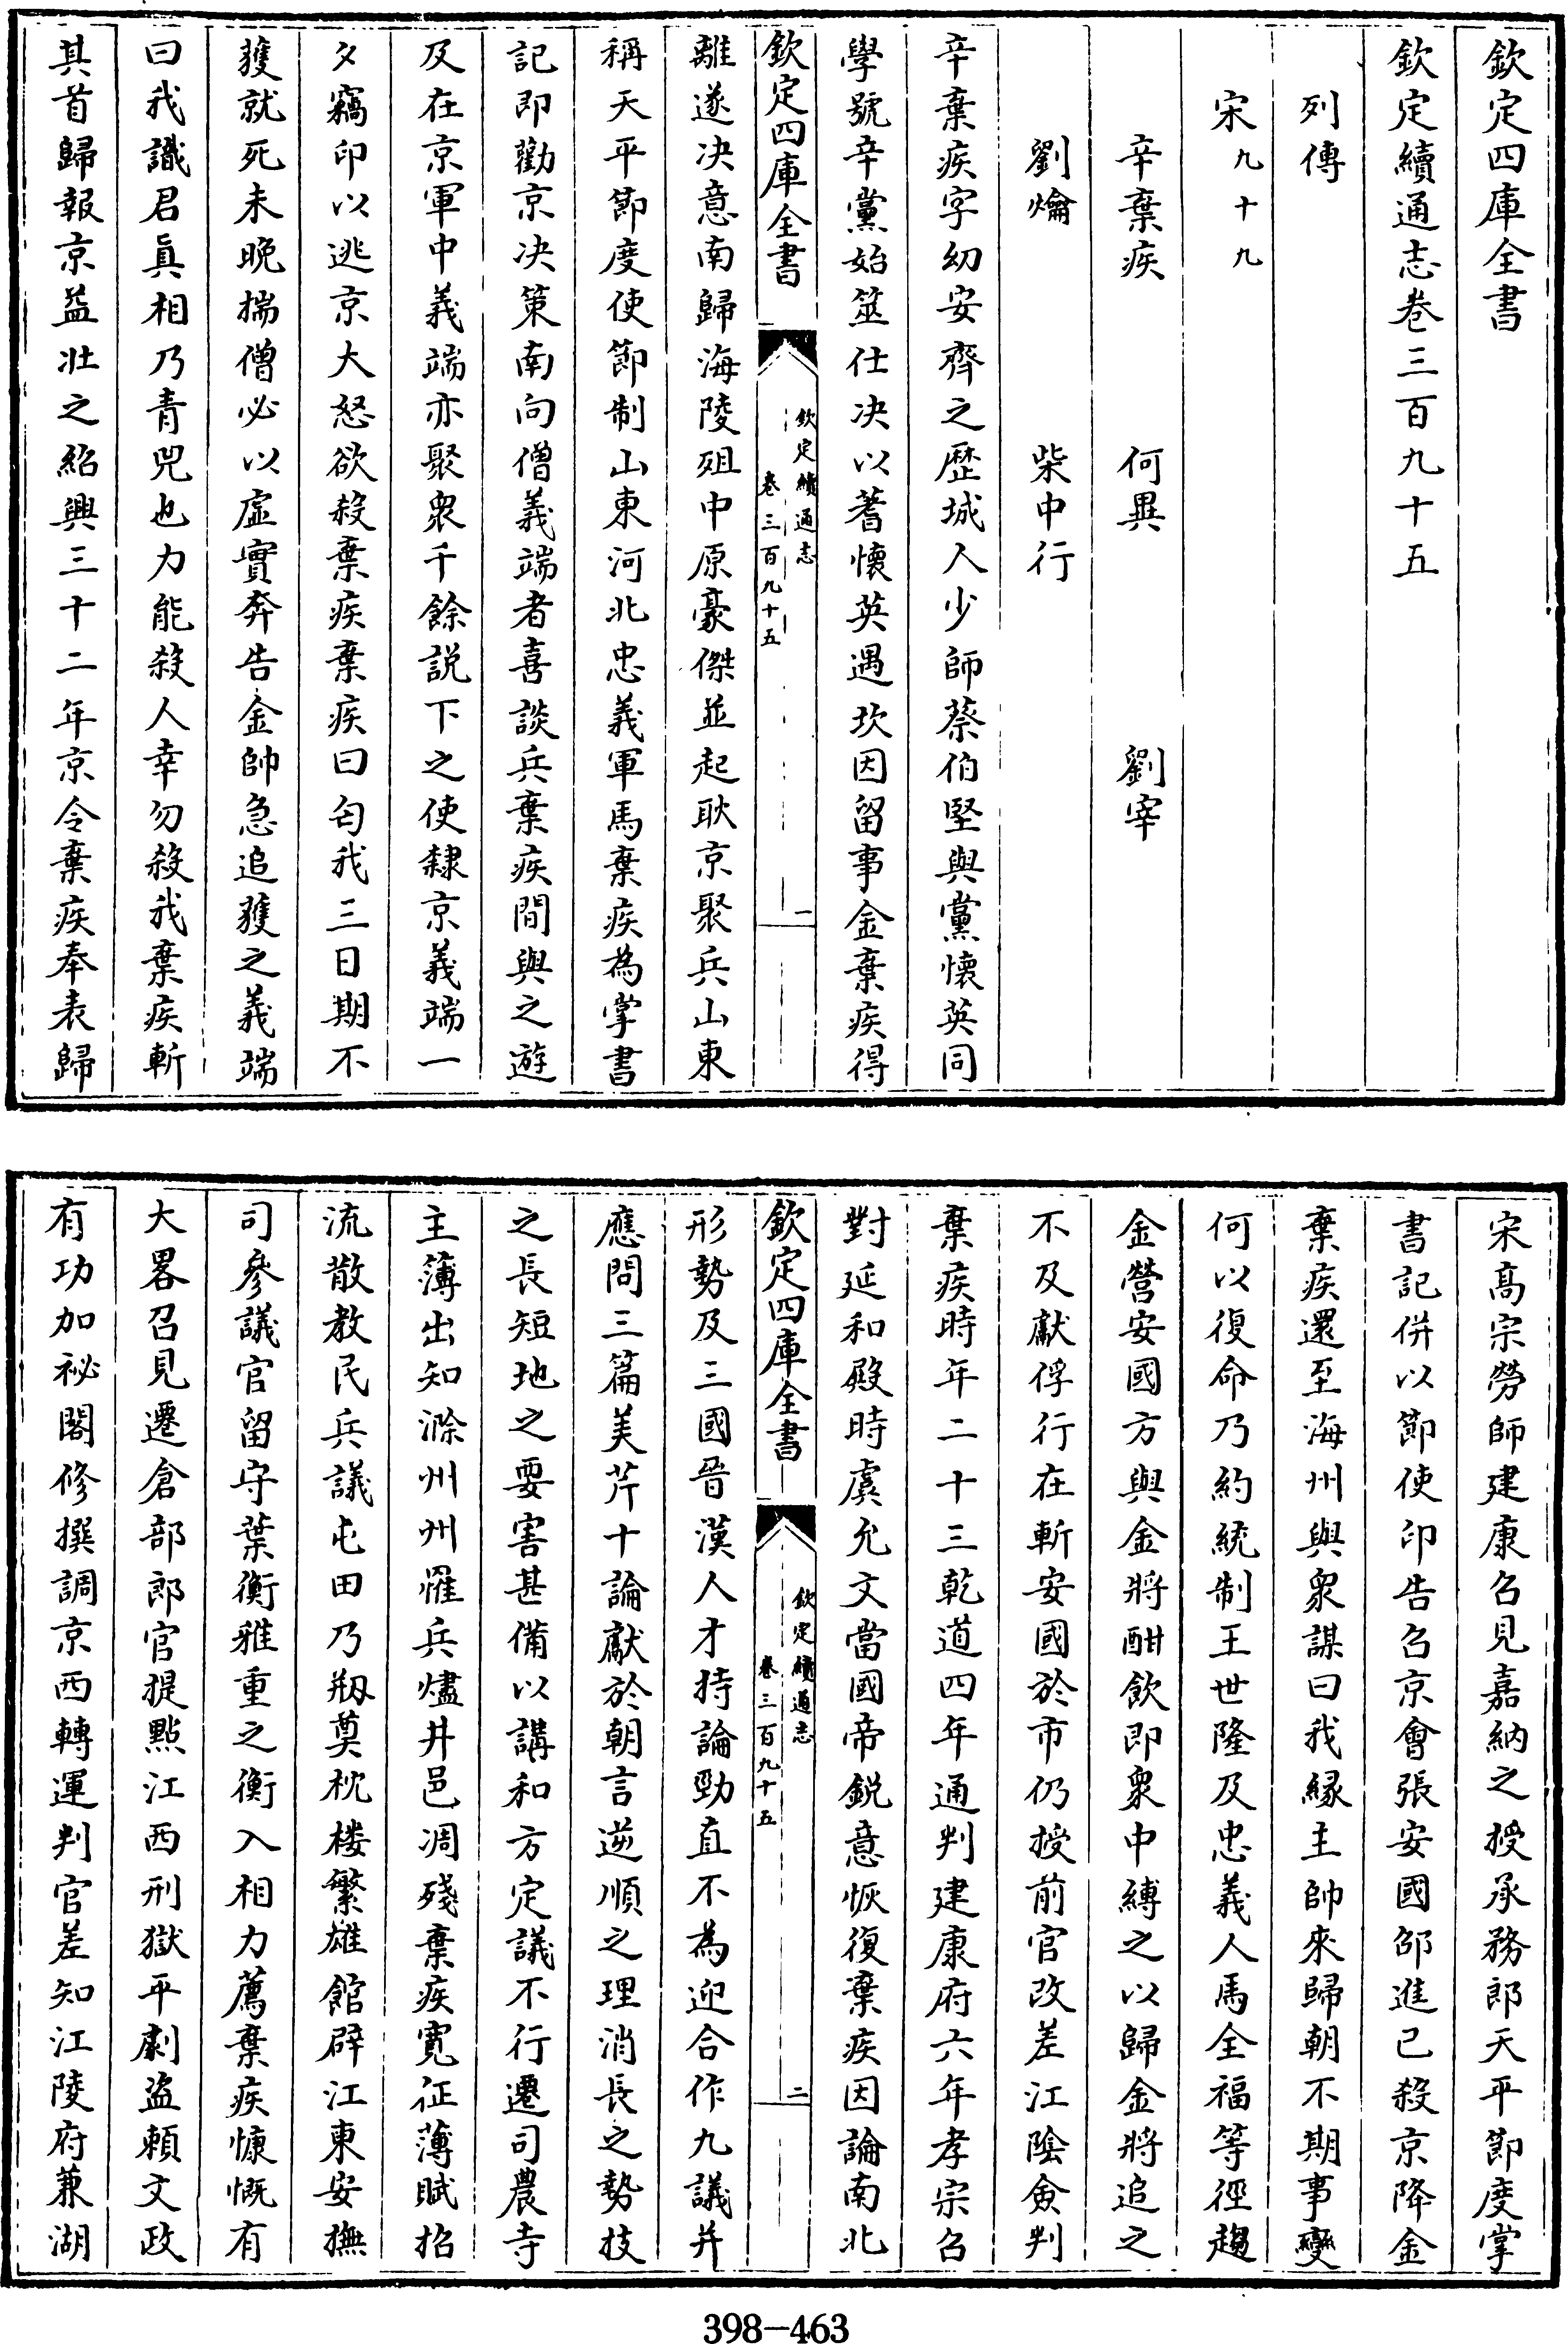 欽定四庫全書
欽定續通志卷三百九十五
列傳
宋九十九
辛棄疾　何異　劉宰
劉爚　柴中行
辛棄疾字幼安齊之歷城人少師蔡伯堅與黨懷英同
學號辛黨始筮仕决以蓍懷英遇坎因留事金棄疾得
欽定四庫全書
欽定續通志
卷三百九十五
一
離遂决意南歸海陵殂中原豪傑並起耿京聚兵山東
稱天平節度使節制山東河北忠義軍馬棄疾為掌書
記即勸京决策南向僧義端者喜談兵棄疾間與之遊
及在京軍中義端亦聚衆千餘説下之使隸京義端一
夕竊印以逃京大怒欲殺棄疾棄疾曰匄我三日期不
獲就死未晚揣僧必以虛實奔告金帥急追獲之義端
曰我識君真相乃青兕也力能殺人幸勿殺我棄疾斬
其首歸報京益壯之紹興三十二年京令棄疾奉表歸
宋髙宗勞師建康召見嘉納之授承務郎天平節度掌
書記併以節使印告召京會張安國邵進已殺京降金
棄疾還至海州與衆謀曰我縁主帥來歸朝不期事變
何以復命乃約統制王世隆及忠義人馬全福等徑趨
金營安國方與金將酣飲即衆中縛之以歸金將追之
不及獻俘行在斬安國於市仍授前官改差江隂僉判
棄疾時年二十三乾道四年通判建康府六年孝宗召
對延和殿時虞允文當國帝鋭意恢復棄疾因論南北
欽定四庫全書
欽定續通志
卷三百九十五
二
形勢及三國晉漢人才持論勁直不為迎合作九議并
應問三篇美芹十論獻於朝言逆順之理消長之勢技
之長短地之要害甚備以講和方定議不行遷司農寺
主簿出知滁州州罹兵燼井邑凋殘棄疾寛征薄賦招
流散教民兵議屯田乃剏奠枕楼繁雄館辟江東安撫
司參議官留守葉衡雅重之衡入相力薦棄疾慷慨有
大畧召見遷倉部郎官提㸃江西刑獄平劇盜賴文政
有功加祕閣修撰調京西轉運判官差知江陵府兼湖
398-463